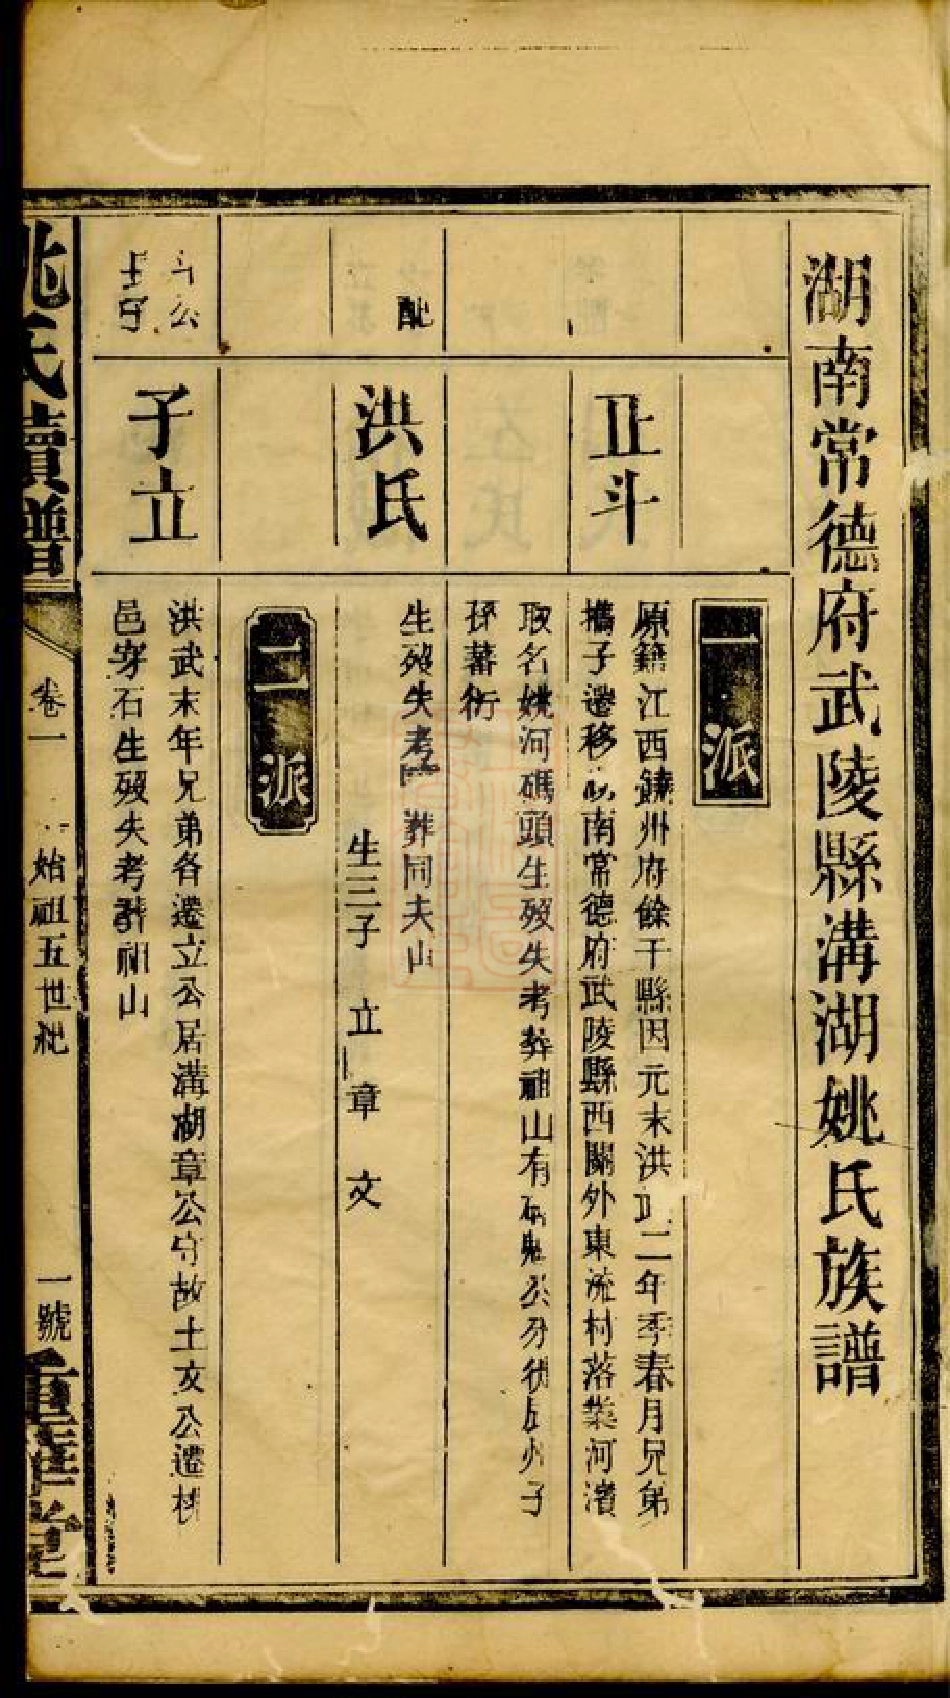 湖南常德府武陵縣溝湖姚氏族譜
一派
正斗
原籍江西饒州府餘干縣因元末洪武二年季春月兄弟
攜子遷移湖南常德府武陵縣西關外東流村落業河濱
取名姚河碼頭生殁失考葬祖山有
子
孫蕃衍
配
洪氏
生殁失考葬同夫山
生三子 立 章 文
二派
斗公
長子
子立
洪武末年兄弟各遷立公居溝湖章公守故土文公遷桃
邑穿石生殁失考葬祖山
姚氏續譜
卷一
始祖五世枇
一號
重華堂